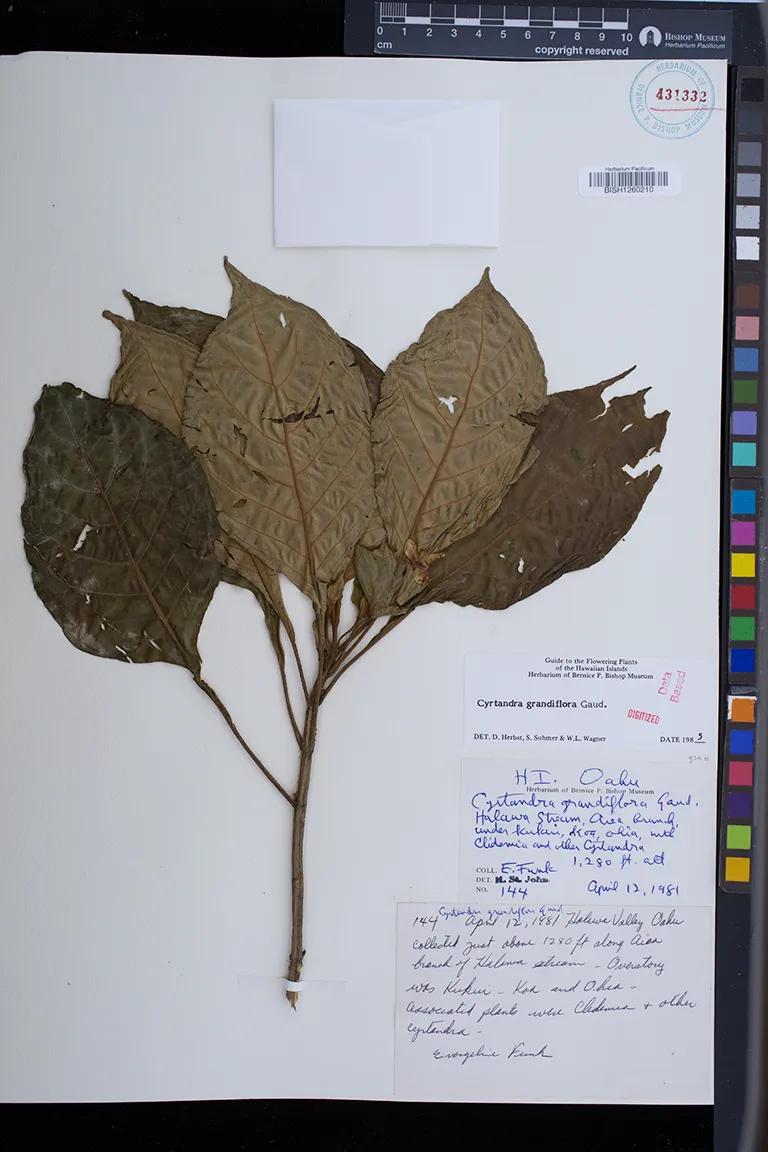 0 1 2 3 4 5 6 7 8 9 10
cm
copyright reserved
BISHOP MUSEUM
Herbarium Pacificum
HERBARIUM OF
BERNICE P. BISHOP MUSEUM
431332
Herbarium Pacificum
BISH1260210
Guide to the Flowering Plants
of the Hawaiian Islands
Herbarium of Bernice P. Bishop Museum
Data
Based
Cyrtandra grandiflora Gaud.
DIGITIZED
DET. D. Herbst, S. Sohmer & W.L. Wagner
DATE 1985
HI. Oahu
Herbarium of Bernice P. Bishop Museum
Cyrtandra grandiflora Gaud.
Halawa Stream, Aiea branch,
under kukui, koa, ohia, with
Clidemia and other Cyrtandra
1,280 ft. alt
COLL. E. Funk
DET. H. St. John
NO. 144
April 12, 1981
Cyrtandra grandiflora Gaud
144 April 12, 1981 Halawa Valley Oahu
collected just above 1280 ft along Aiea
branch of Halawa stream - Overstory
was Kukui - Koa and Ohia -
associated plants were Clidemia + other
cyrtandra -
Evangeline Funk